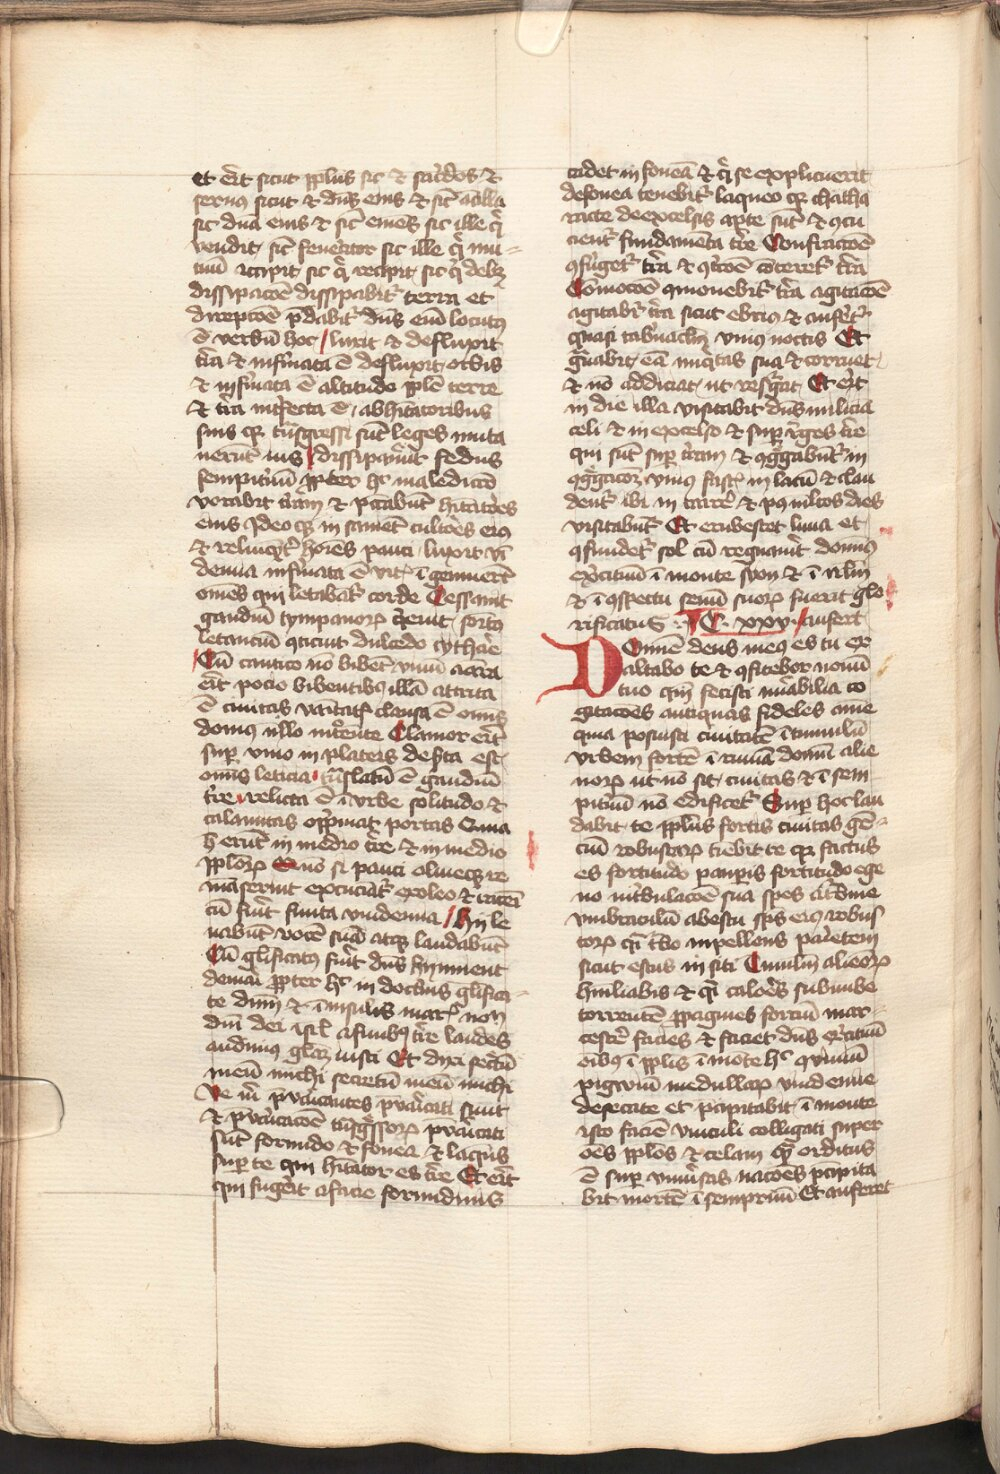 et erit sicut pplus sic et sacdos et
seruus sicut et dns eius et sic ancilla
sic dna eius et sic emens sic ille qi
vendit sic fenerator sic ille qi mu-
tuu accipit sic qi recipit sic qi debz
dissipacoe dissipabit terra et
direpcoe pdabit dns eni locutus
e verbu hoc luxit et defluxit
tra et infirmata e defluxit orbis
et infirmata e altitudo ppli terre
et tra interfecta e ab hitatoribus
suis qr tnsgressi sut leges muta
uerut ius dissipauerut fedus
sempiternu ppter hc maledictio
vorabit tram et peccabut hitatores
eius Ideoqz insanient cultores eius
et relinquetr hoies pauci luxit vi
demia infirmata e vitis i gemuert
omes qui letabatr corde Cessauit
gaudiu tympanorz quieuit sonitus
letanciu conticuit dulcedo cythare
Cu cantico no bibet vinu amara
erit pocio bibentibus illa attrita
e ciuitas vanitatis clausa e omnis
domus nllo introeute Clamor erit
sup vino in plateis deserta est
omis leticia tnslatu e gaudiu
tre relicta e i vrbe solitudo et
calamitas opprimat portas Quia
h erut in medio tre et in medio
pplorz Quo si pauci oliueqz re
manserint excuciatr ex oleo et racemi
cu fuit finita vindemia Hij le
uabut voce sua atqz laudabut
Cu glificatus fuit dns hinnient
de mari ppter hc in doctinis glifica-
te dnm et i insulis maris nomen
dni dei isrl a finibus tre laudes
audiuius gliaz iusti Et dixi secretu
meu michi secretu meu michi
Ve m pvaricantes pvaricati sunt
et pvaricacoe tnsgssorz pvaricati
sut formido et fouea et laqus
sup te qui hitator es tre Et erit
qui fugerit a facie formidinis
cadet in fouea et qi se explicuerit
de fouea tenebit laqueo qr catha
racte de excelsis apte sut et concu
cient fundamenta tre Confractoe
confriget tra et contricoe conteret tra
Comocoe comouebit tra agitacoe
agitabr tra sicut ebrius et auferet
quasi tabnaclm vnius noctis Et
grauabit ea iniqitas sua et corruet
et no addiciat ut resgat Et erit
in die illa visitabit dns milicia
celi et in excelso et sup reges tre
qui sut sup tram et congregabut in
congregacoz vnius fascis in lacu et clau
dent ibi in carcere et post multos dies
visitabut Et erubescet luna et
confundet sol cu regnauit domus
exercituu i monte syon et i irlm
et i conspectu senu suorz fuerit glo
rificatus C. xxv. aufert
DOmine deus meus es tu ex
altabo te et confitebor nomi
tuo qm fecisti mirabilia co
gitacoes antiquas fideles ame
quia posuisti ciuitate i tumulu
vrbem forte i ruina domu alie
norz ut no sit ciuitas et i sem
pitnu no edificet Sup hoc lau
dabit te pplus fortis ciuitas gen-
ciu robustarz timebit te qr factus
es fortitudo paupis fortitudo ege
no in tribulacoe sua spes a turbine
vmbraculu ab estu sps enim robus
torz qi tbo inpellens parietem
sicut estus in siti Tumultu alienorz
humiliabis et qi calores sub nube
torrente ppagines fortiu mar-
cescere facies et faciet dns exercituu
oibus i pplis i mote hc conuiuiu
pigwiu medullatorz vindemie
defecate et pcipitabit i monte
isto facie vinculi colligati super
oes pplos et telam qua orditus
e sup vniusas nacoes pcipita
bit morte i sempitnu Et auferet